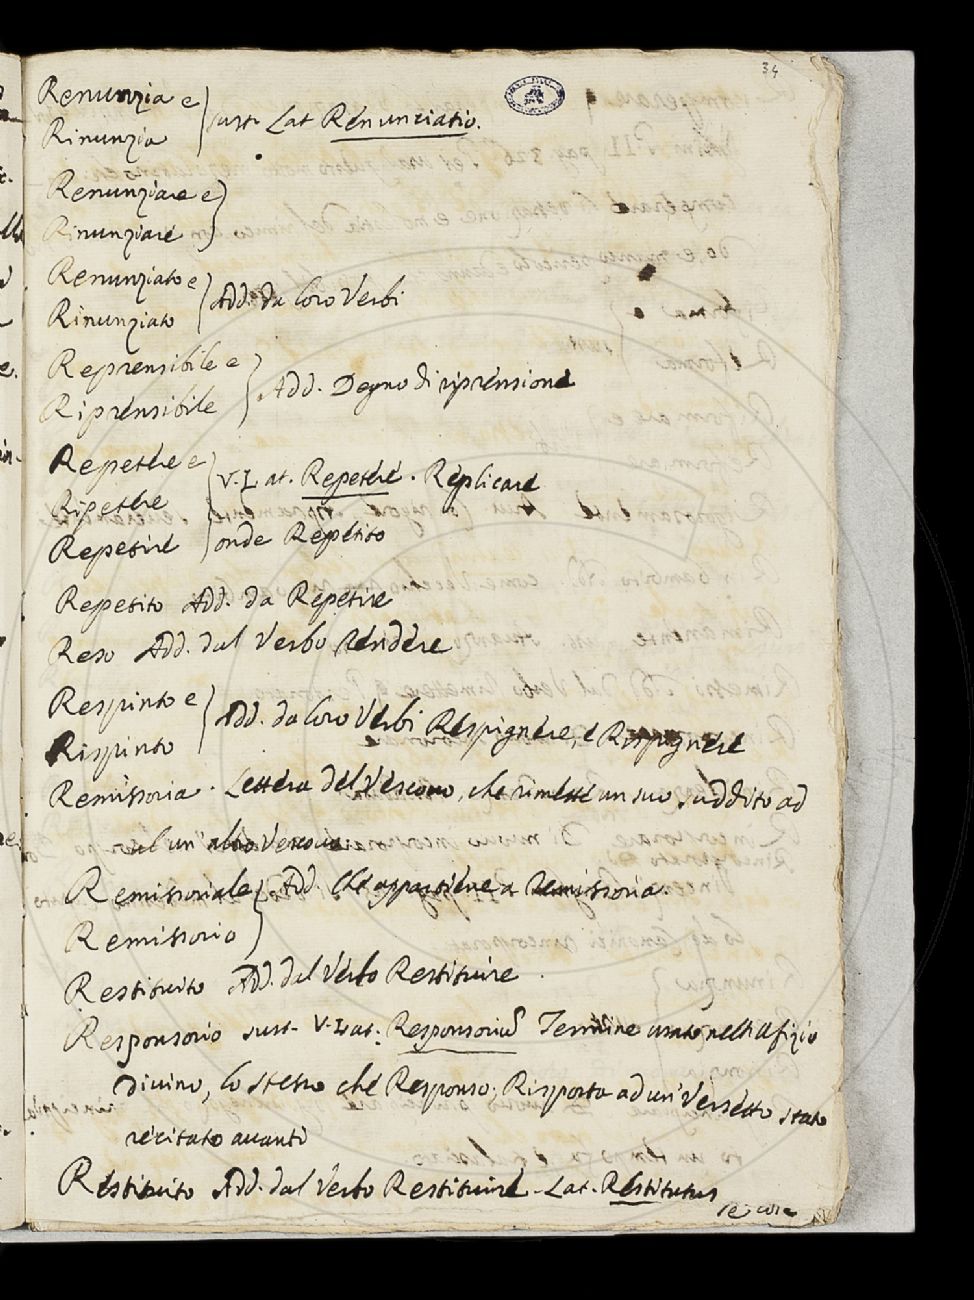 34
Renunzia e
Rinunzia } sust. Lat Renunziatio.
Renunziare e
Rinunziare }
Renunziato e
Rinunziato } Add. da loro Verbi
Reprensibile e
Riprensibile } Add. Degno di riprensione
Repethe e
Ripethe
Repetire } V. Lat. Repethere. Replicare
onde Repetito
Repetito Add. da Repetire
Reso Add. dal Verbo rendere
Respinto e
Rispinto } Add. da loro Verbi Respignere, e Rispignere
Remissoria. Lettera del Vescovo, che rimette un suo suddito ad
ad un altro
Remissoriale
Remissorio } Add. Che appartiene a remissoria.
Restituito Add. dal Verbo Restituire
Responsorio sust. V. Lat. Responsoriu Termine usato nell'Ufizio
Divino, lo stesso che Responso; Risposta ad un Versetto stato
recitato avanti
Restituito Add. dal Verbo Restituire. Lat. Restitutus